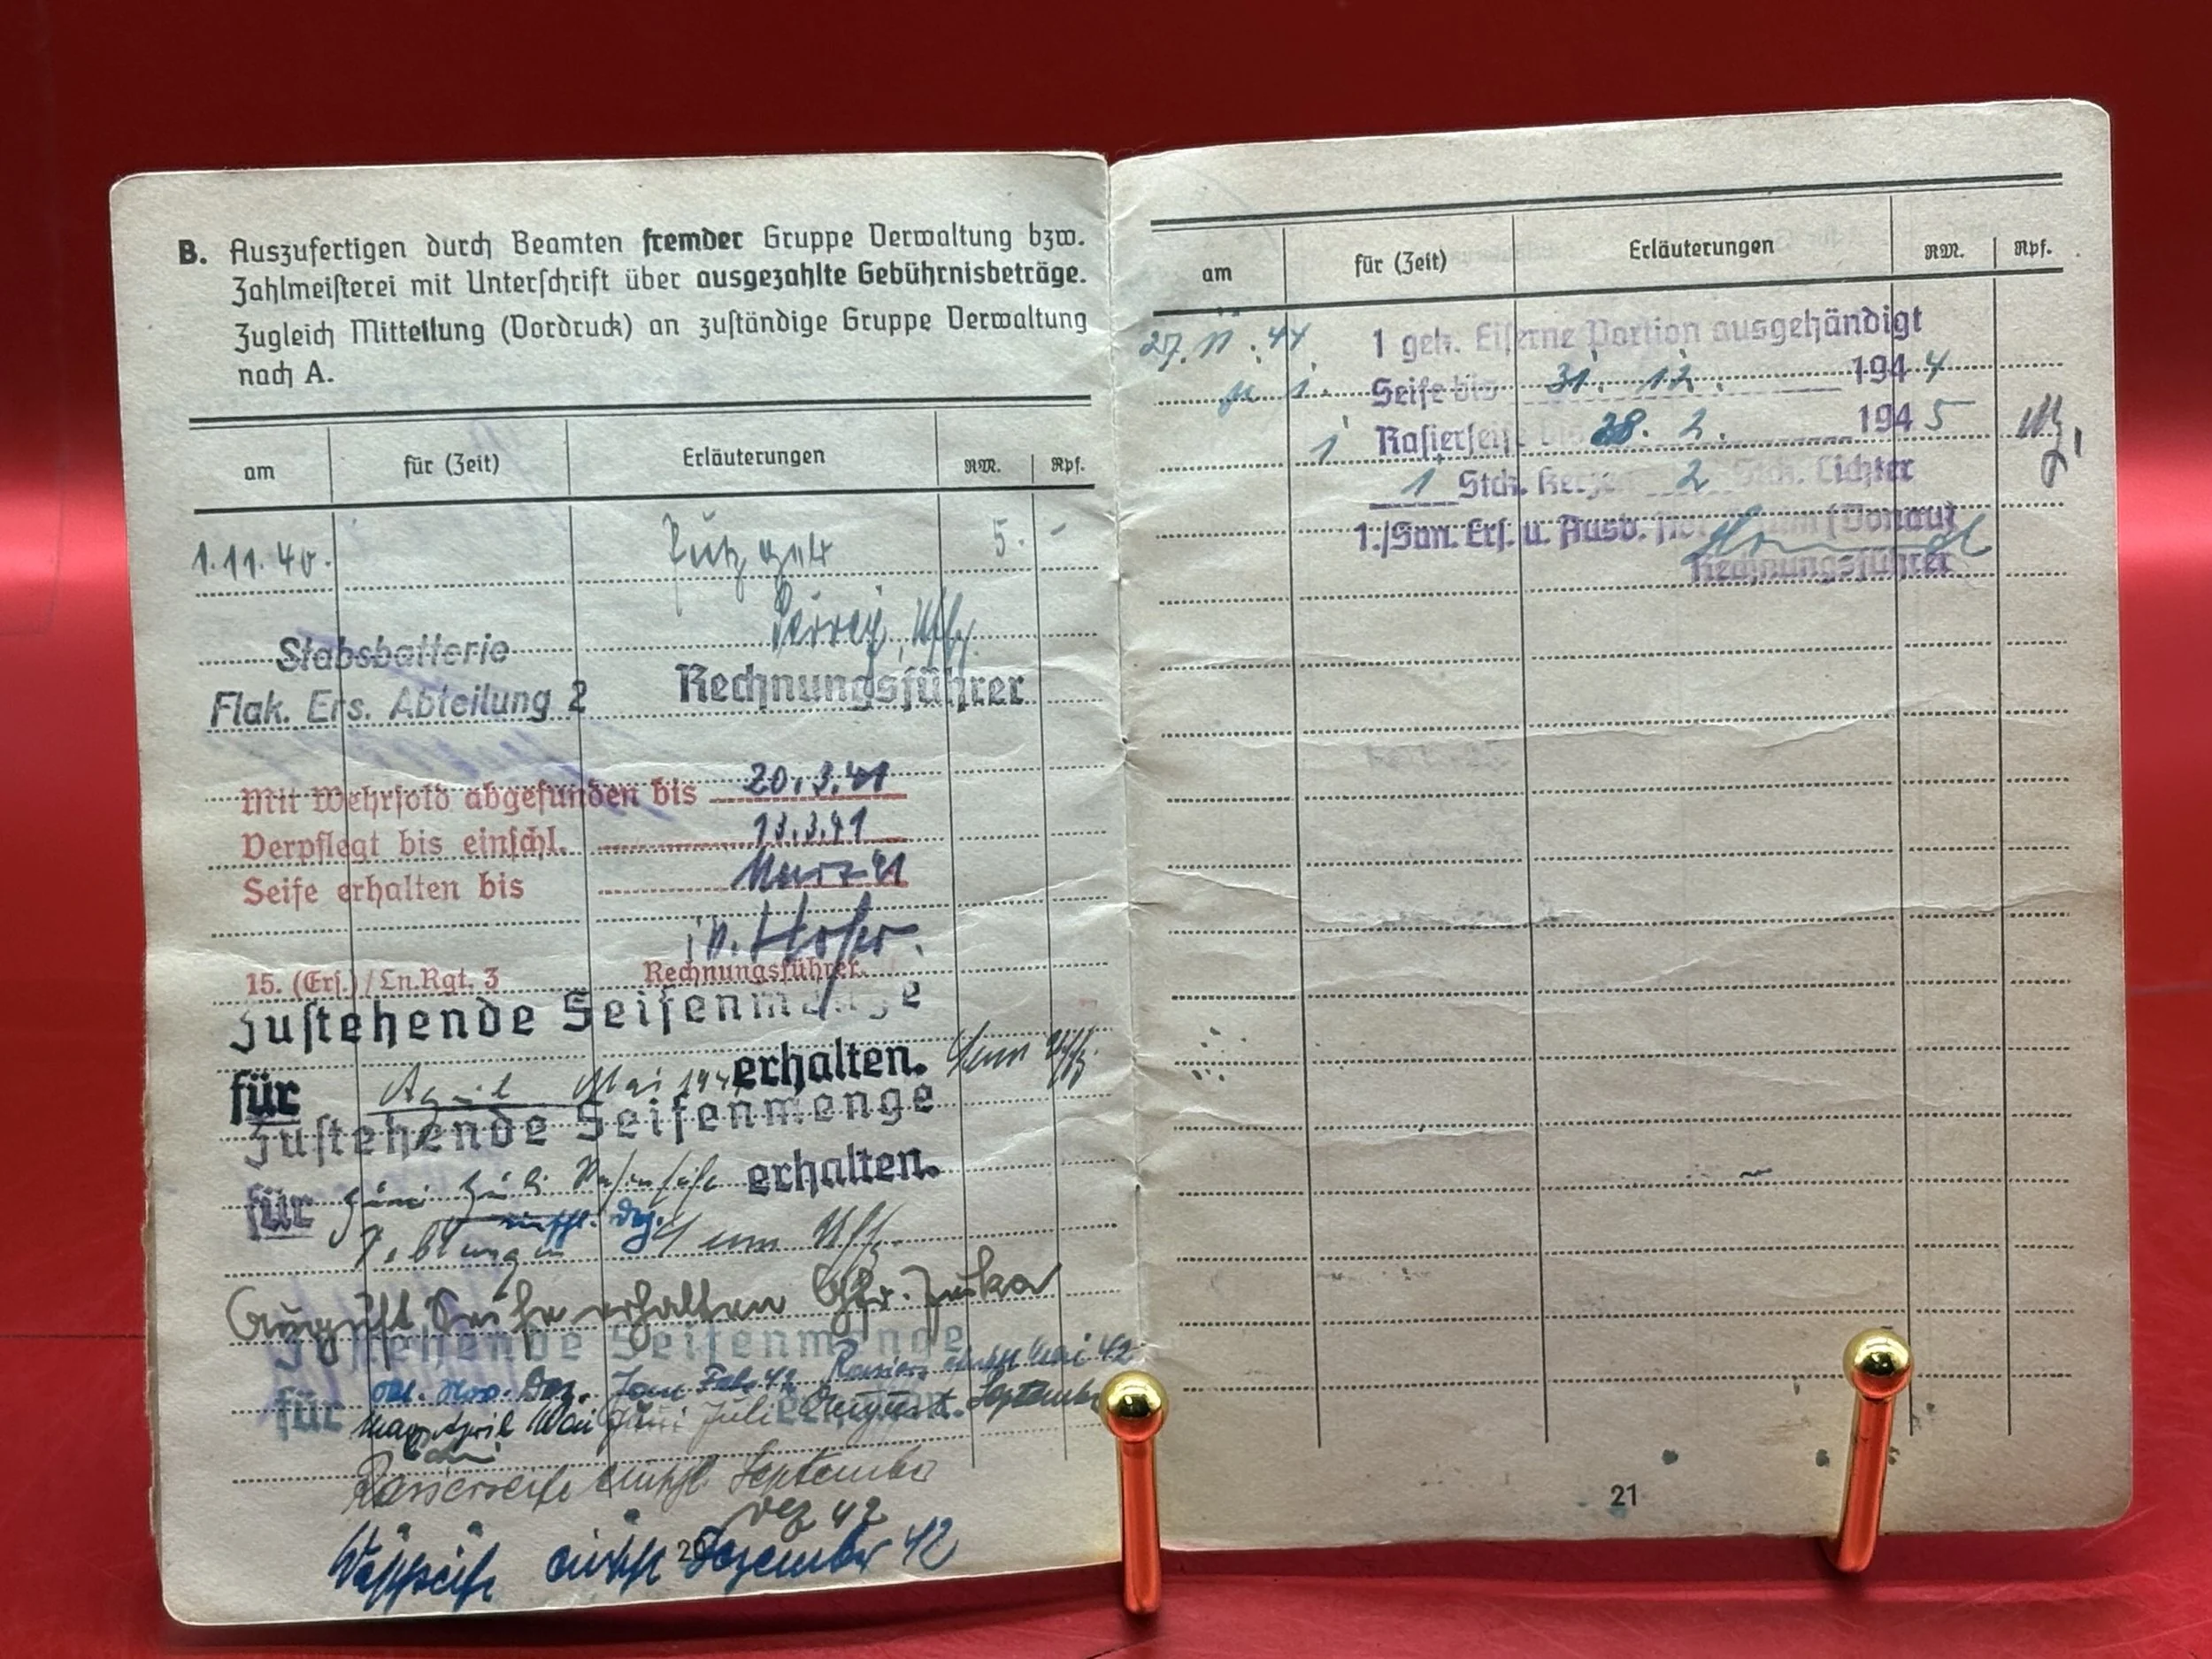 B. Auszufertigen durch Beamten fremder Gruppe Verwaltung bzw.
Zahlmeisterei mit Unterschrift über ausgezahlte Gebührnisbeträge.
Zugleich Mitteilung (Vordruck) an zuständige Gruppe Verwaltung
nach A.
am für (Zeit) Erläuterungen RM. Rpf.
1.11.40. Putzgeld 5. -
Uffz.
Stabsbatterie
Flak. Ers. Abteilung 2 Rechnungsführer
Mit Wehrsold abgefunden bis 20.3.41
Verpflegt bis einschl. 13.3.41
Seife erhalten bis März 41
15. (Ers.) / Ln.Rgt. 3 Rechnungsführer.
Zustehende Seifenmenge
für April Mai 1941 erhalten. Uffz.
Zustehende Seifenmenge
für Juni Juli erhalten.
einschl. Dez.
Uffz.
August Seife erhalten
Zustehende Seifenmenge
Okt. Nov. Dez. Jan Feb. 42 Rasiers. einschl Mai 42
für März April Mai Juni Juli August. September
Rasierseife einschl. September
Dez 42
Waschseife einschl Dezember 42
20
am für (Zeit) Erläuterungen RM. Rpf.
27.11.44 1 geh. Eiserne Portion ausgehändigt
1 Seife bis 31. 12. 1944
1 Rasierseife bis 28. 2. 1945
1 Stck. Kerze 2 Stck. Lichter
1./San. Ers. u. Ausb. Ulm (Donau)
Rechnungsführer
21